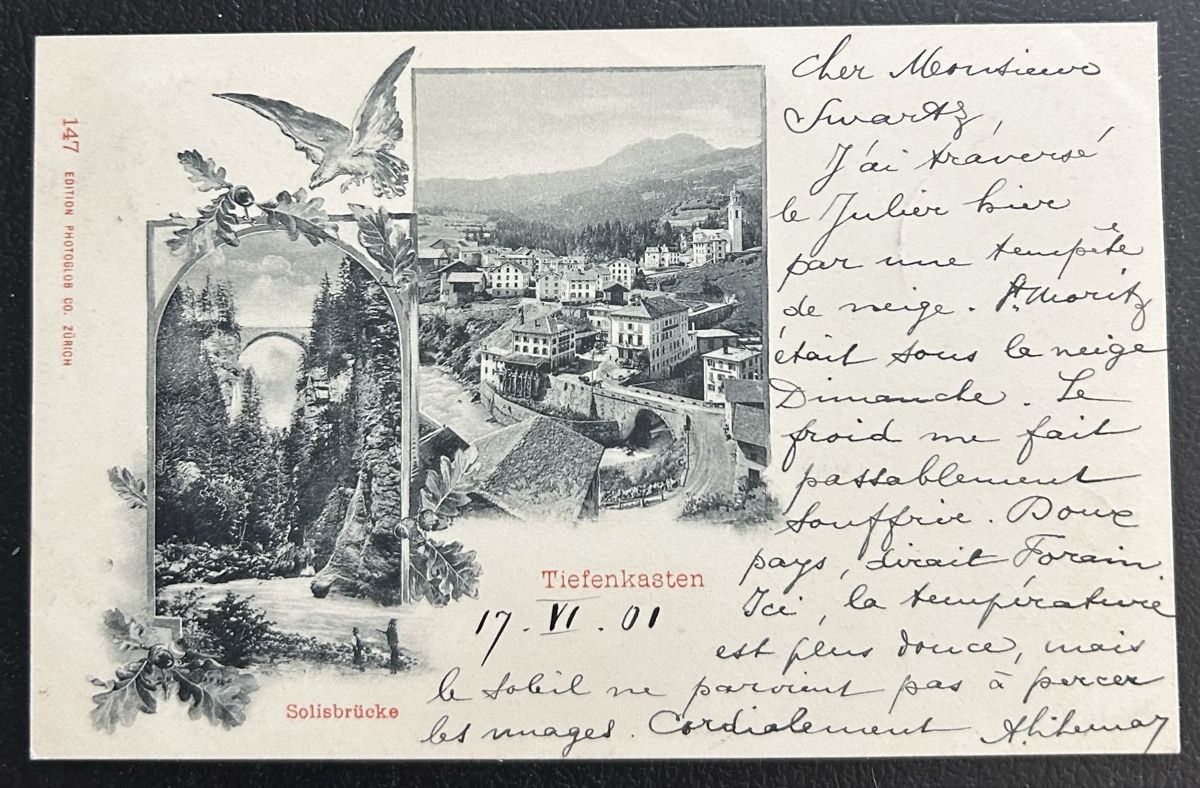 147 EDITION PHOTOGLOB CO. ZÜRICH
Cher Monsieur
Swartz,
J'ai traversé
le Julier hier
par une tempête
de neige. St. Moritz
était sous la neige
Dimanche. Le
froid me fait
passablement
souffrir. Doux
pays, dirait Forain.
Ici, la température
est plus douce, mais
le soleil ne parvient pas à percer
les nuages. Cordialement
Tiefenkasten
17. VI. 01
Solisbrücke